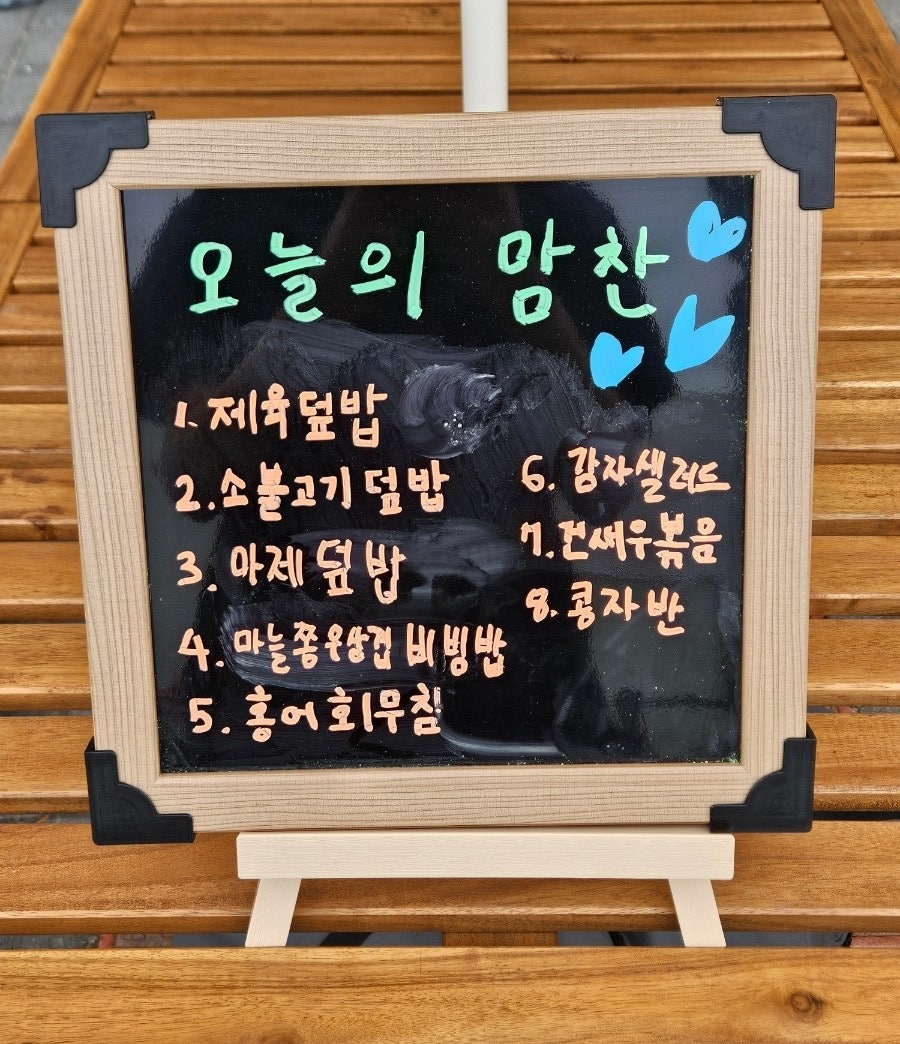 오늘의 맘찬
1. 제육덮밥
2. 소불고기 덮밥
3. 마제 덮밥
4. 마늘쫑우삼겹 비빔밥
5. 홍어회무침
6. 감자샐러드
7. 건새우볶음
8. 콩자반